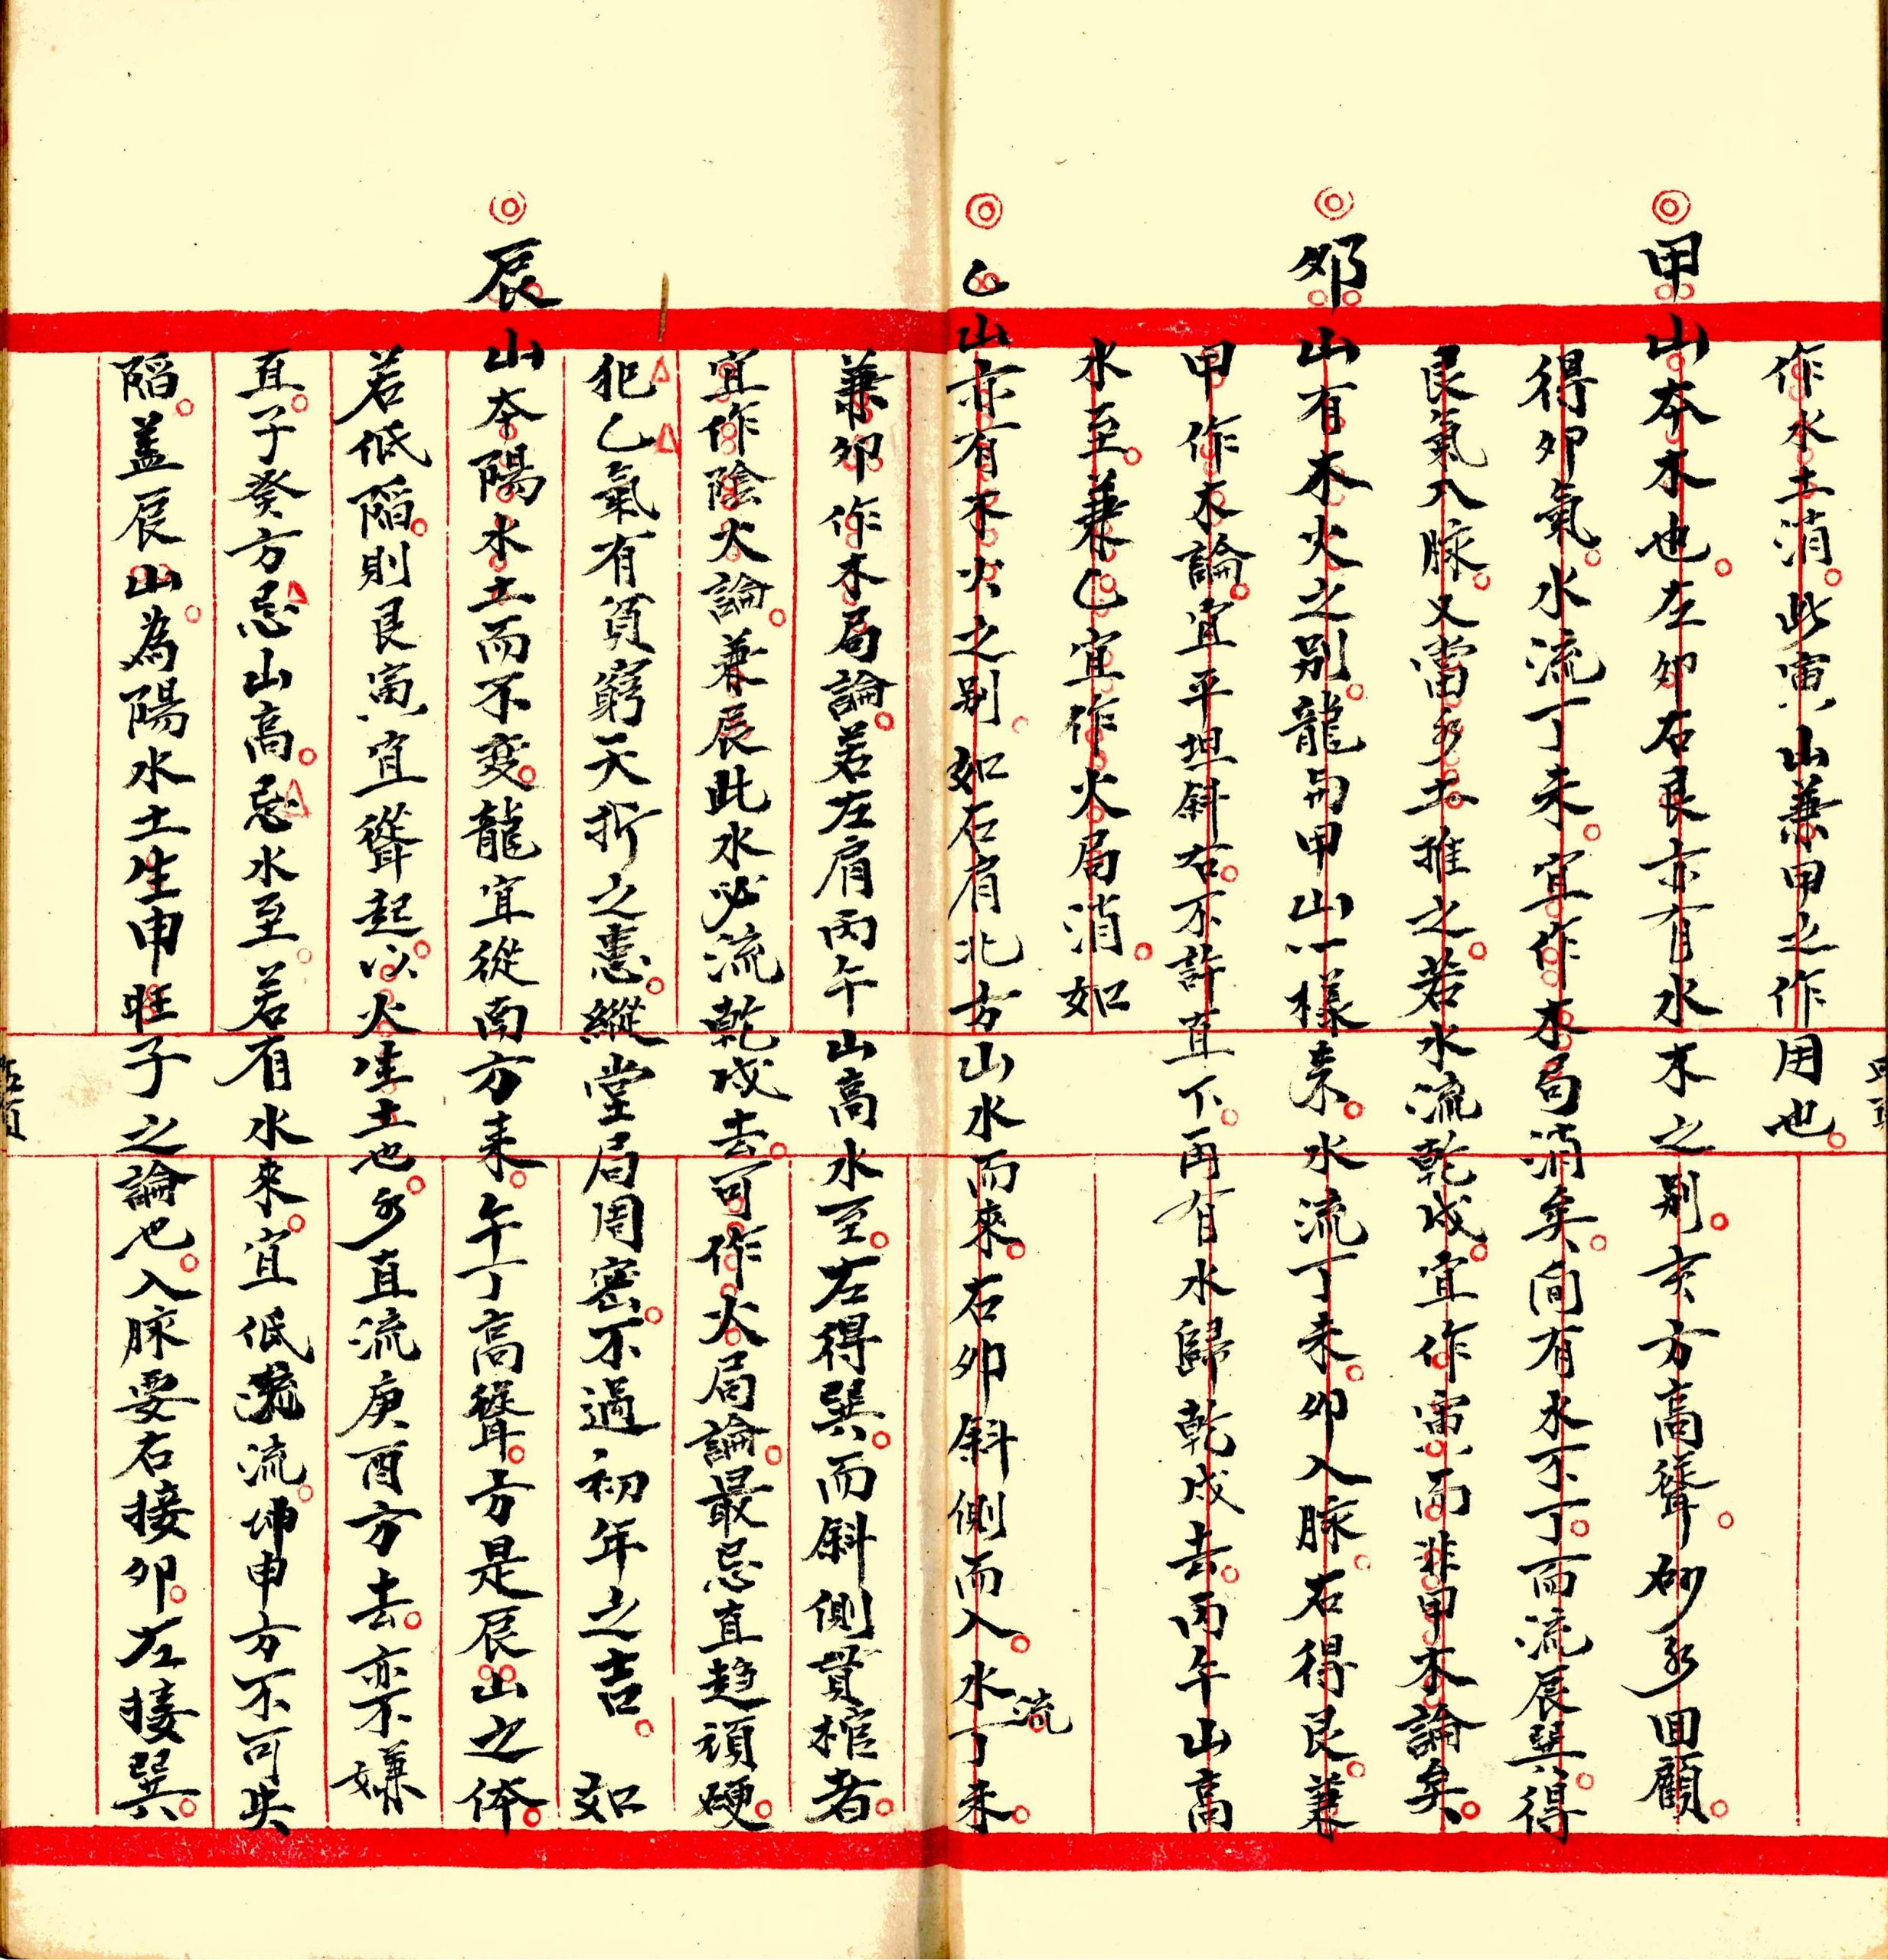 作水土消。此寅山兼甲之作用也。
甲山本木也。左卯右艮亦有水木之別。亥方高聳。砂水回顧。
得卯氣。水流丁未。宜作木局消矣。間有水不丁。而流辰巽。得
艮氣入脉。又當以水土推之。若水流乾戌。宜作寅而非甲木論矣。
卯山有木火之別。龍與甲山一樣來。水流丁未。卯入脉。右得艮。兼
甲作木論。宜平坦斜右。不許直下。再有水歸乾戌去。丙午山高
水至。兼乙宜作火局消。如
乙山亦有木火之別。如右肩北方山水而來。右卯斜側而入。水流丁未。
兼卯作木局論。若左肩丙午山高水至。左得巽。而斜側貫棺者。
宜作陰火論。兼辰此水必流乾戌去。可作火局論。最忌直趨頑硬。
犯乙氣有貧窮夭折之患。縱堂局周密。不過初年之吉。如
辰山本陽水土而不變。龍宜從南方來。午丁高聳。方是辰山之体。
若低陷。則艮寅宜聳起。以火生土也。水直流庚酉方去。亦不嫌
直。子癸方忌山高。忌水至。若有水來。宜低流。坤申方不可失
陷。蓋辰山。為陽水土生申旺子之論也。入脉要右接卯。左接巽。